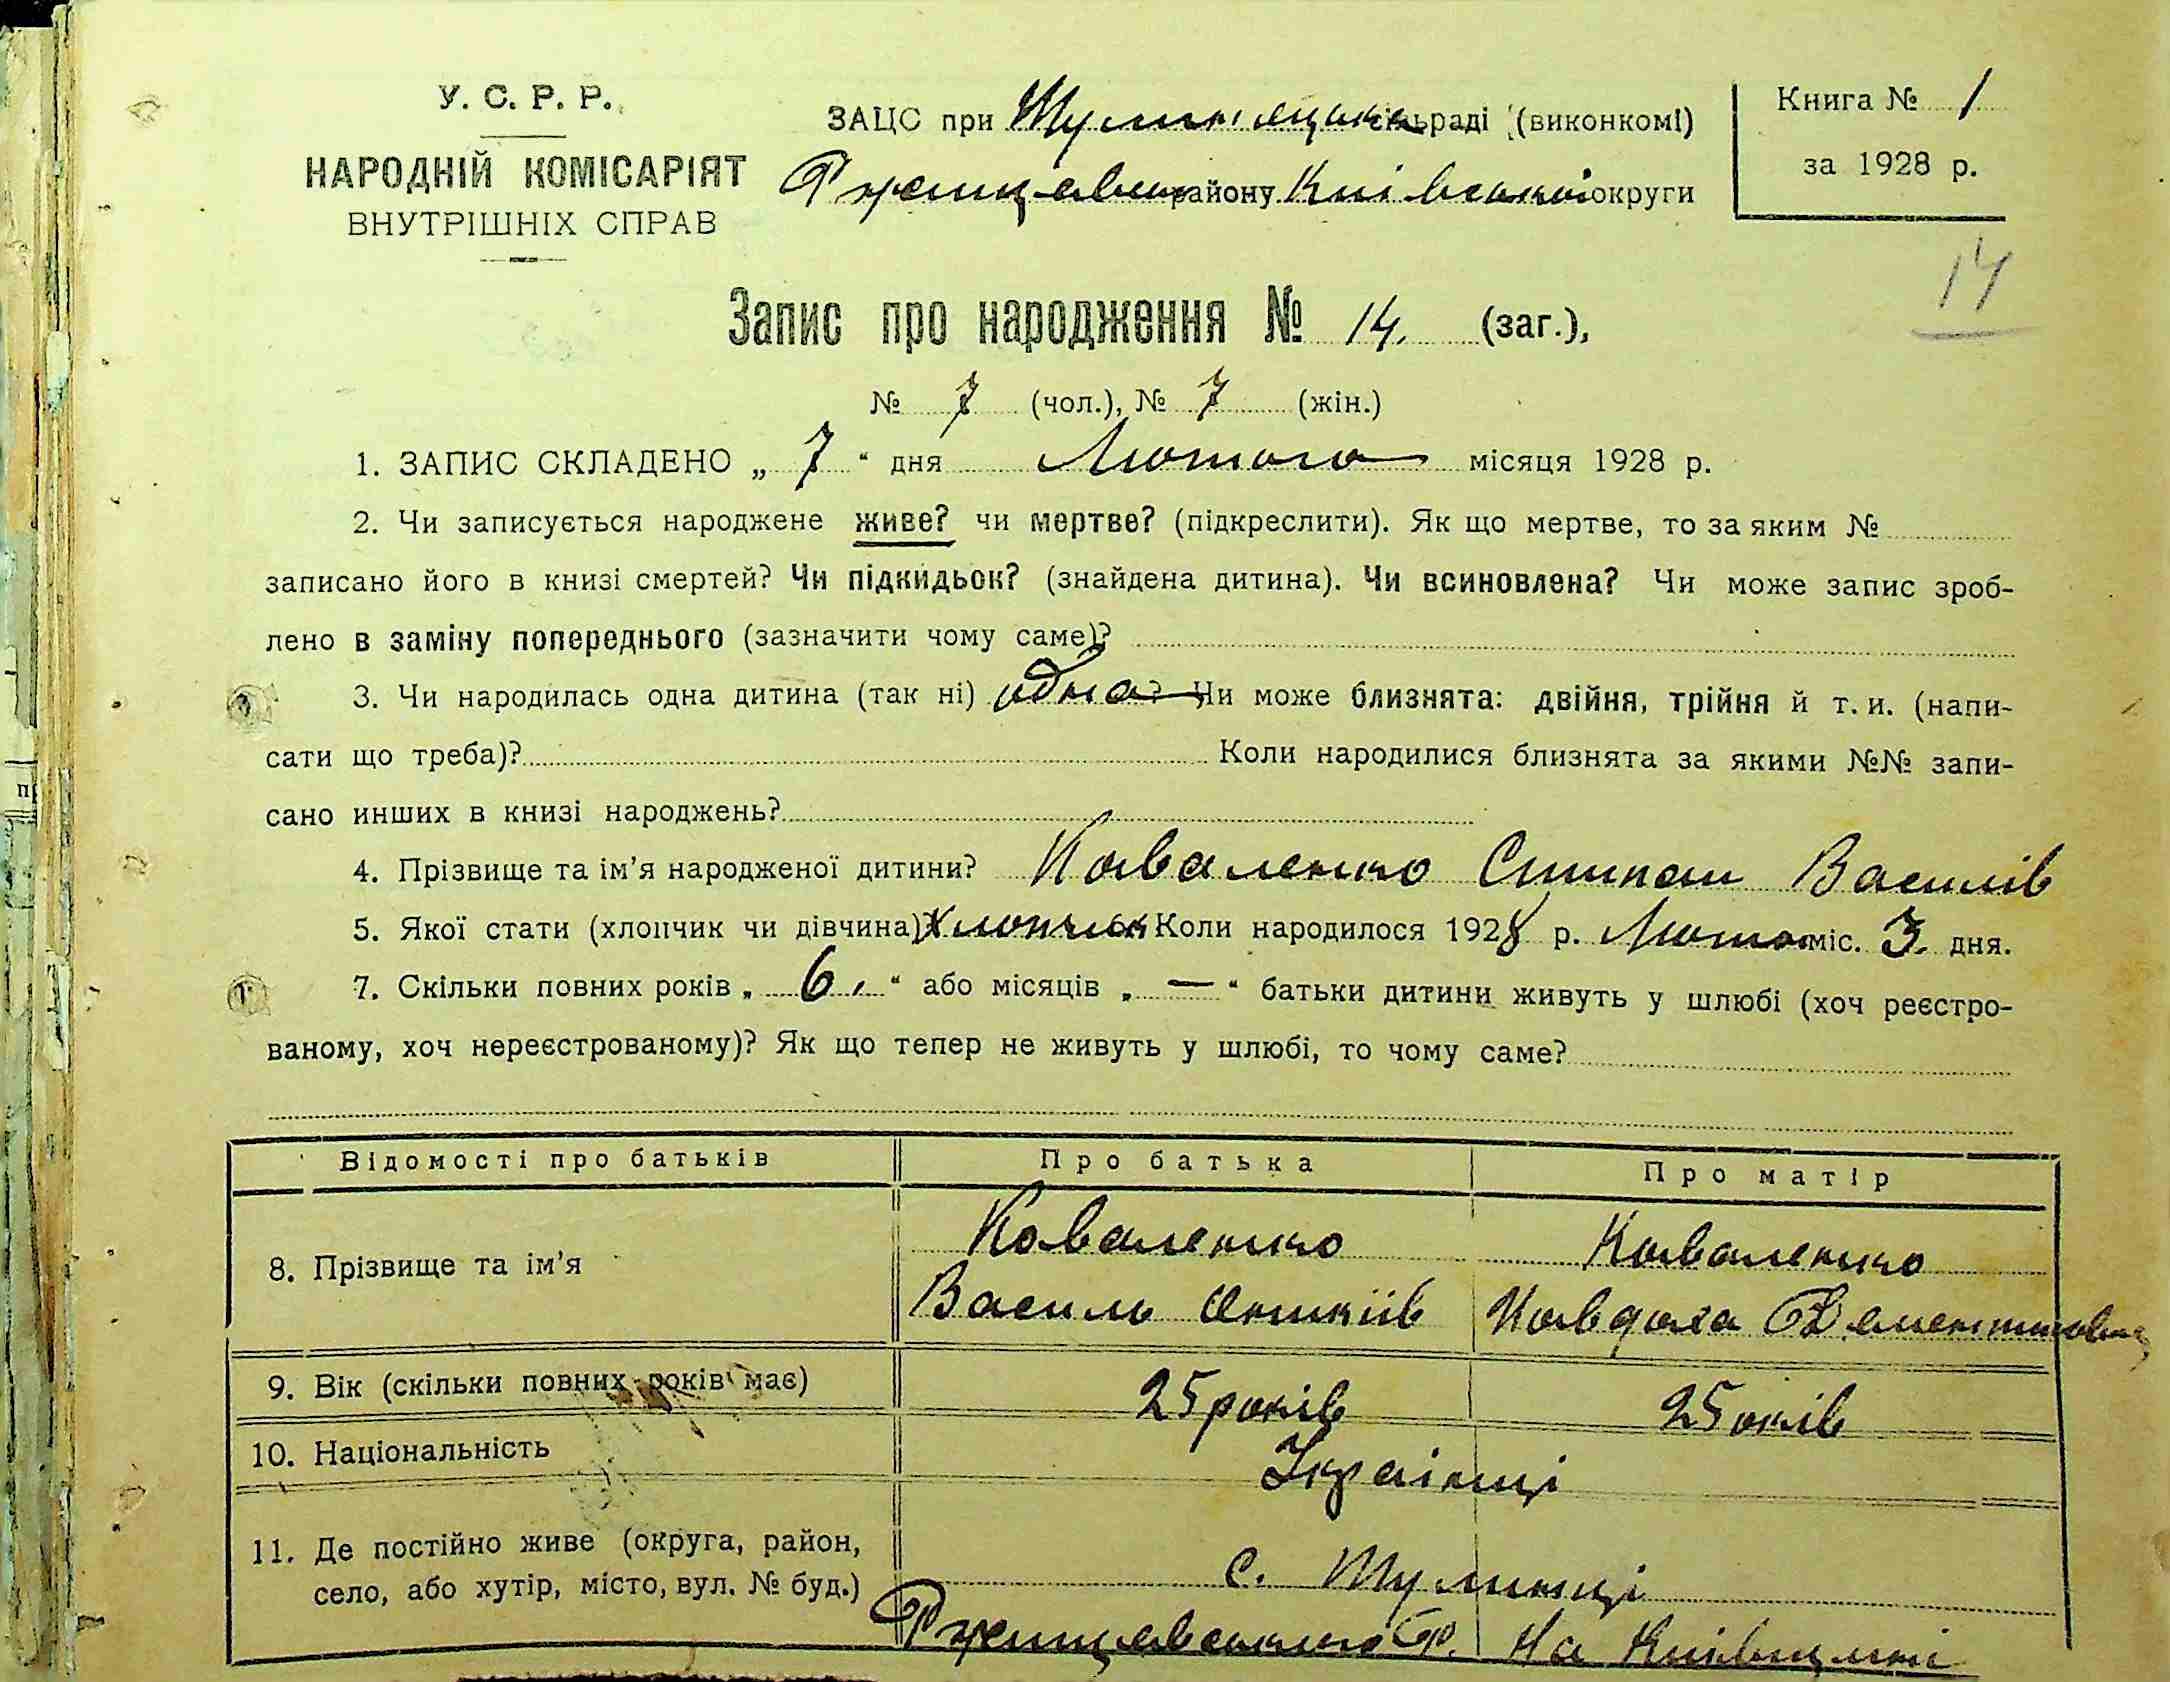 У. С. Р. Р.
НАРОДНІЙ КОМІСАРІЯТ
ВНУТРІШНІХ СПРАВ
ЗАЦС при сільраді (виконкомі)
району Київської округи
Книга № 1
за 1928 р.
14
Запис про народження № 14. (заг.),
№ 7 (чол.), № 7 (жін.)
1. ЗАПИС СКЛАДЕНО „ 7 “ дня Лютого місяця 1928 р.
2. Чи записується народжене живе? чи мертве? (підкреслити). Як що мертве, то за яким №
записано його в книзі смертей? Чи підкидьок? (знайдена дитина). Чи всиновлена? Чи може запис зроб-
лено в заміну попереднього (зазначити чому саме)?
3. Чи народилась одна дитина (так ні) одна ? Чи може близнята: двійня, трійня й т. и. (напи-
сати що треба)? Коли народилися близнята за якими №№ запи-
сано инших в книзі народжень?
4. Прізвище та ім’я народженої дитини? Коваленко Степан Василів
5. Якої стати (хлопчик чи дівчина) хлопчик Коли народилося 1928 р. Лютого міс. 3. дня.
7. Скільки повних років „ 6. “ або місяців „ — “ батьки дитини живуть у шлюбі (хоч реєстро-
ваному, хоч нереєстрованому)? Як що тепер не живуть у шлюбі, то чому саме?
Відомості про батьків Про батька Про матір
8. Прізвище та ім’я Коваленко Коваленко
Василь Явдоха
9. Вік (скільки повних років має) 25 років 25 оків
10. Національність Українці
11. Де постійно живе (округа, район,
село, або хутір, місто, вул. № буд.) с.
Р. на Київщині